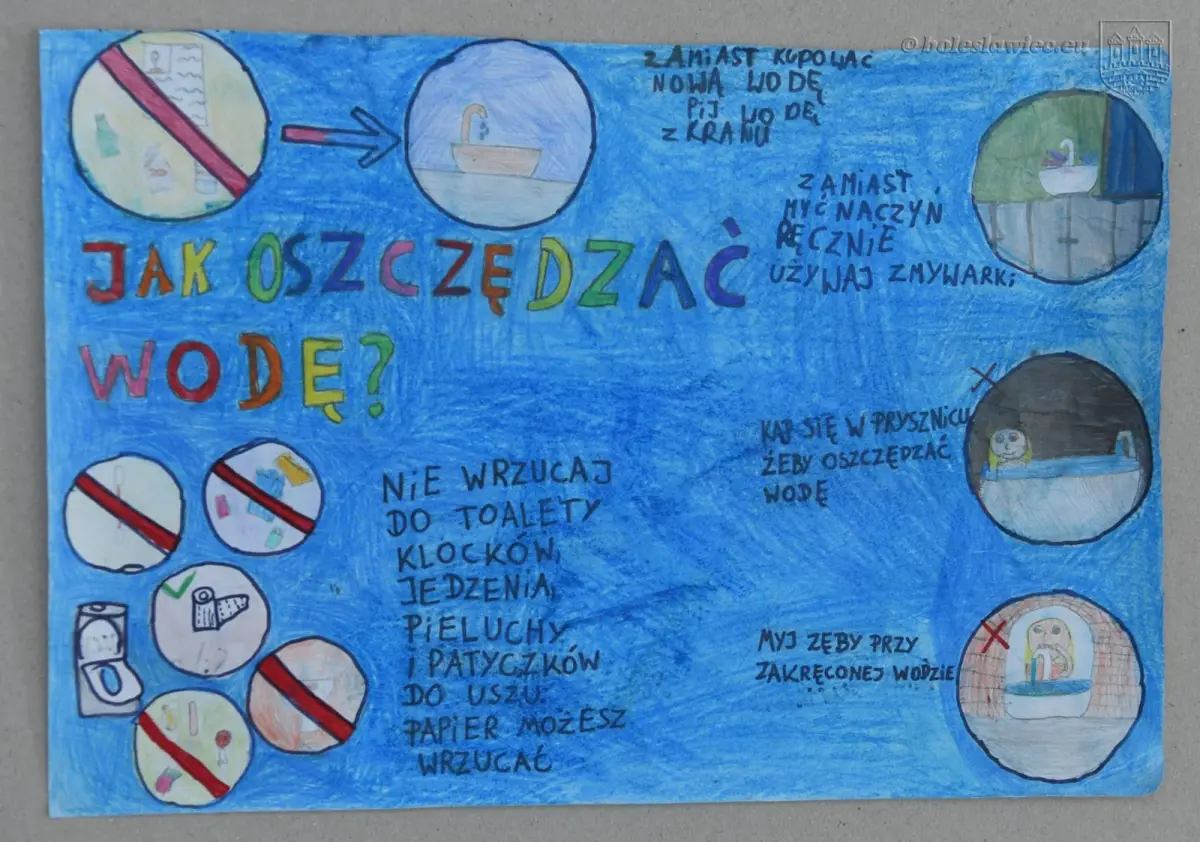 ©boleslawiec.eu
ZAMIAST KUPOWAĆ
NOWĄ WODĘ
PIJ WODĘ
Z KRANU
ZAMIAST
MYĆ NACZYŃ
RĘCZNIE
UŻYWAJ ZMYWARKi
JAK OSZCZĘDZAĆ
WODĘ?
KĄP SIĘ W PRYSZNICU
ŻEBY OSZCZĘDZAĆ
WODĘ
NiE WRZUCAJ
DO TOALETY
KLOCKÓW,
JEDZENIA,
PiELUCHY
i PATYCZKÓW
DO USZU.
PAPIER MOŻESZ
WRZUCAĆ
MYJ ZĘBY PRZY
ZAKRĘCONEJ WODZIE